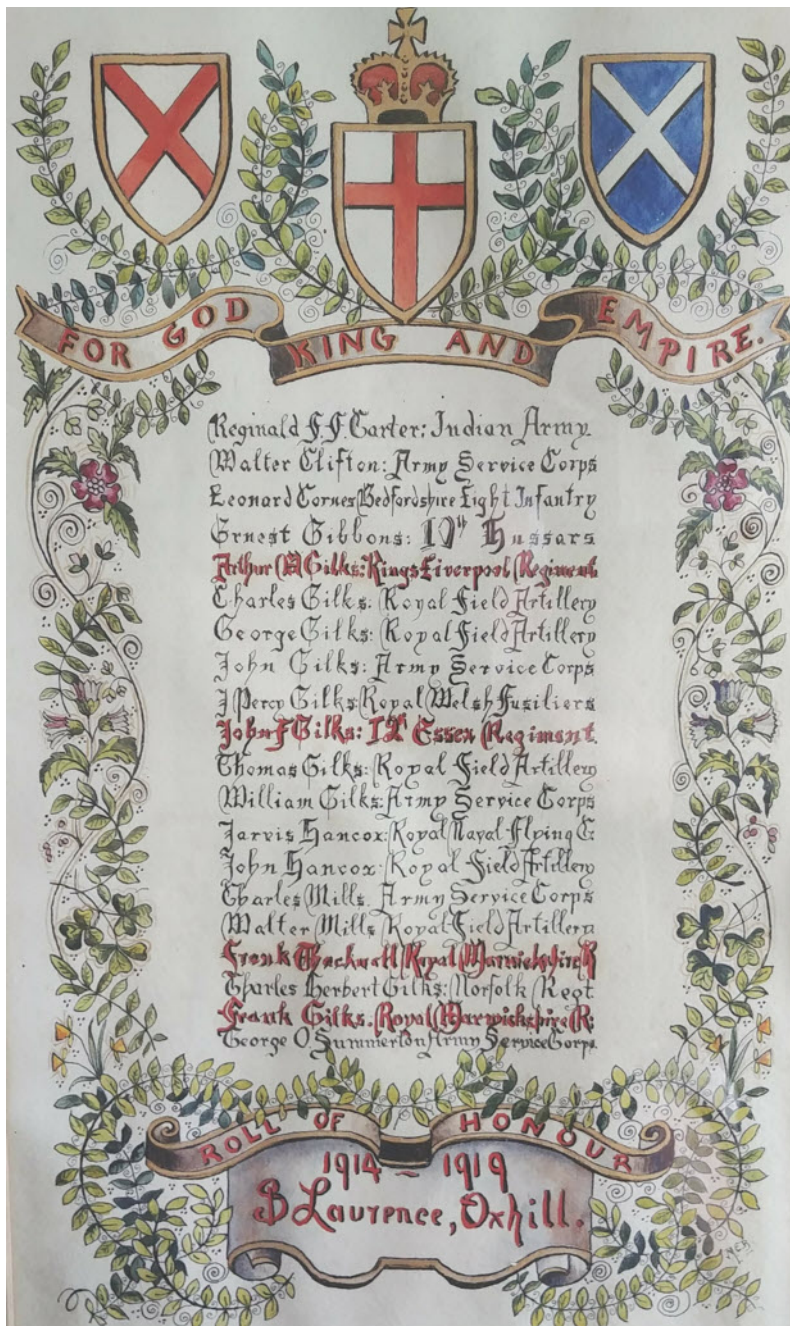 FOR GOD KING AND EMPIRE.
Reginald F.F. Carter: Indian Army.
Walter Clifton: Army Service Corps
Leonard Cornes Bedfordshire Light Infantry
Ernest Gibbons: 19th Hussars
Arthur Gilks: Kings Liverpool Regiment
Charles Gilks: Royal Field Artillery
George Gilks: Royal Field Artillery
John Gilks: Army Service Corps
J Percy Gilks: Royal Welsh Fusiliers
John F Gilks: Essex Regiment.
Thomas Gilks: Royal Field Artillery
William Gilks: Army Service Corps
Jarvis Hancox: Royal Naval Flying C:
John Hancox: Royal Field Artillery
Charles Mills. Army Service Corps
Walter Mills Royal Field Artillery
Frank Royal Warwickshire R
Charles Herbert Gilks: Norfolk Regt.
Frank Gilks: Royal Warwickshire R:
George O. Summerton Army Service Corps.
ROLL OF HONOUR
1914 ~ 1919
S Laurence, Oxhill.